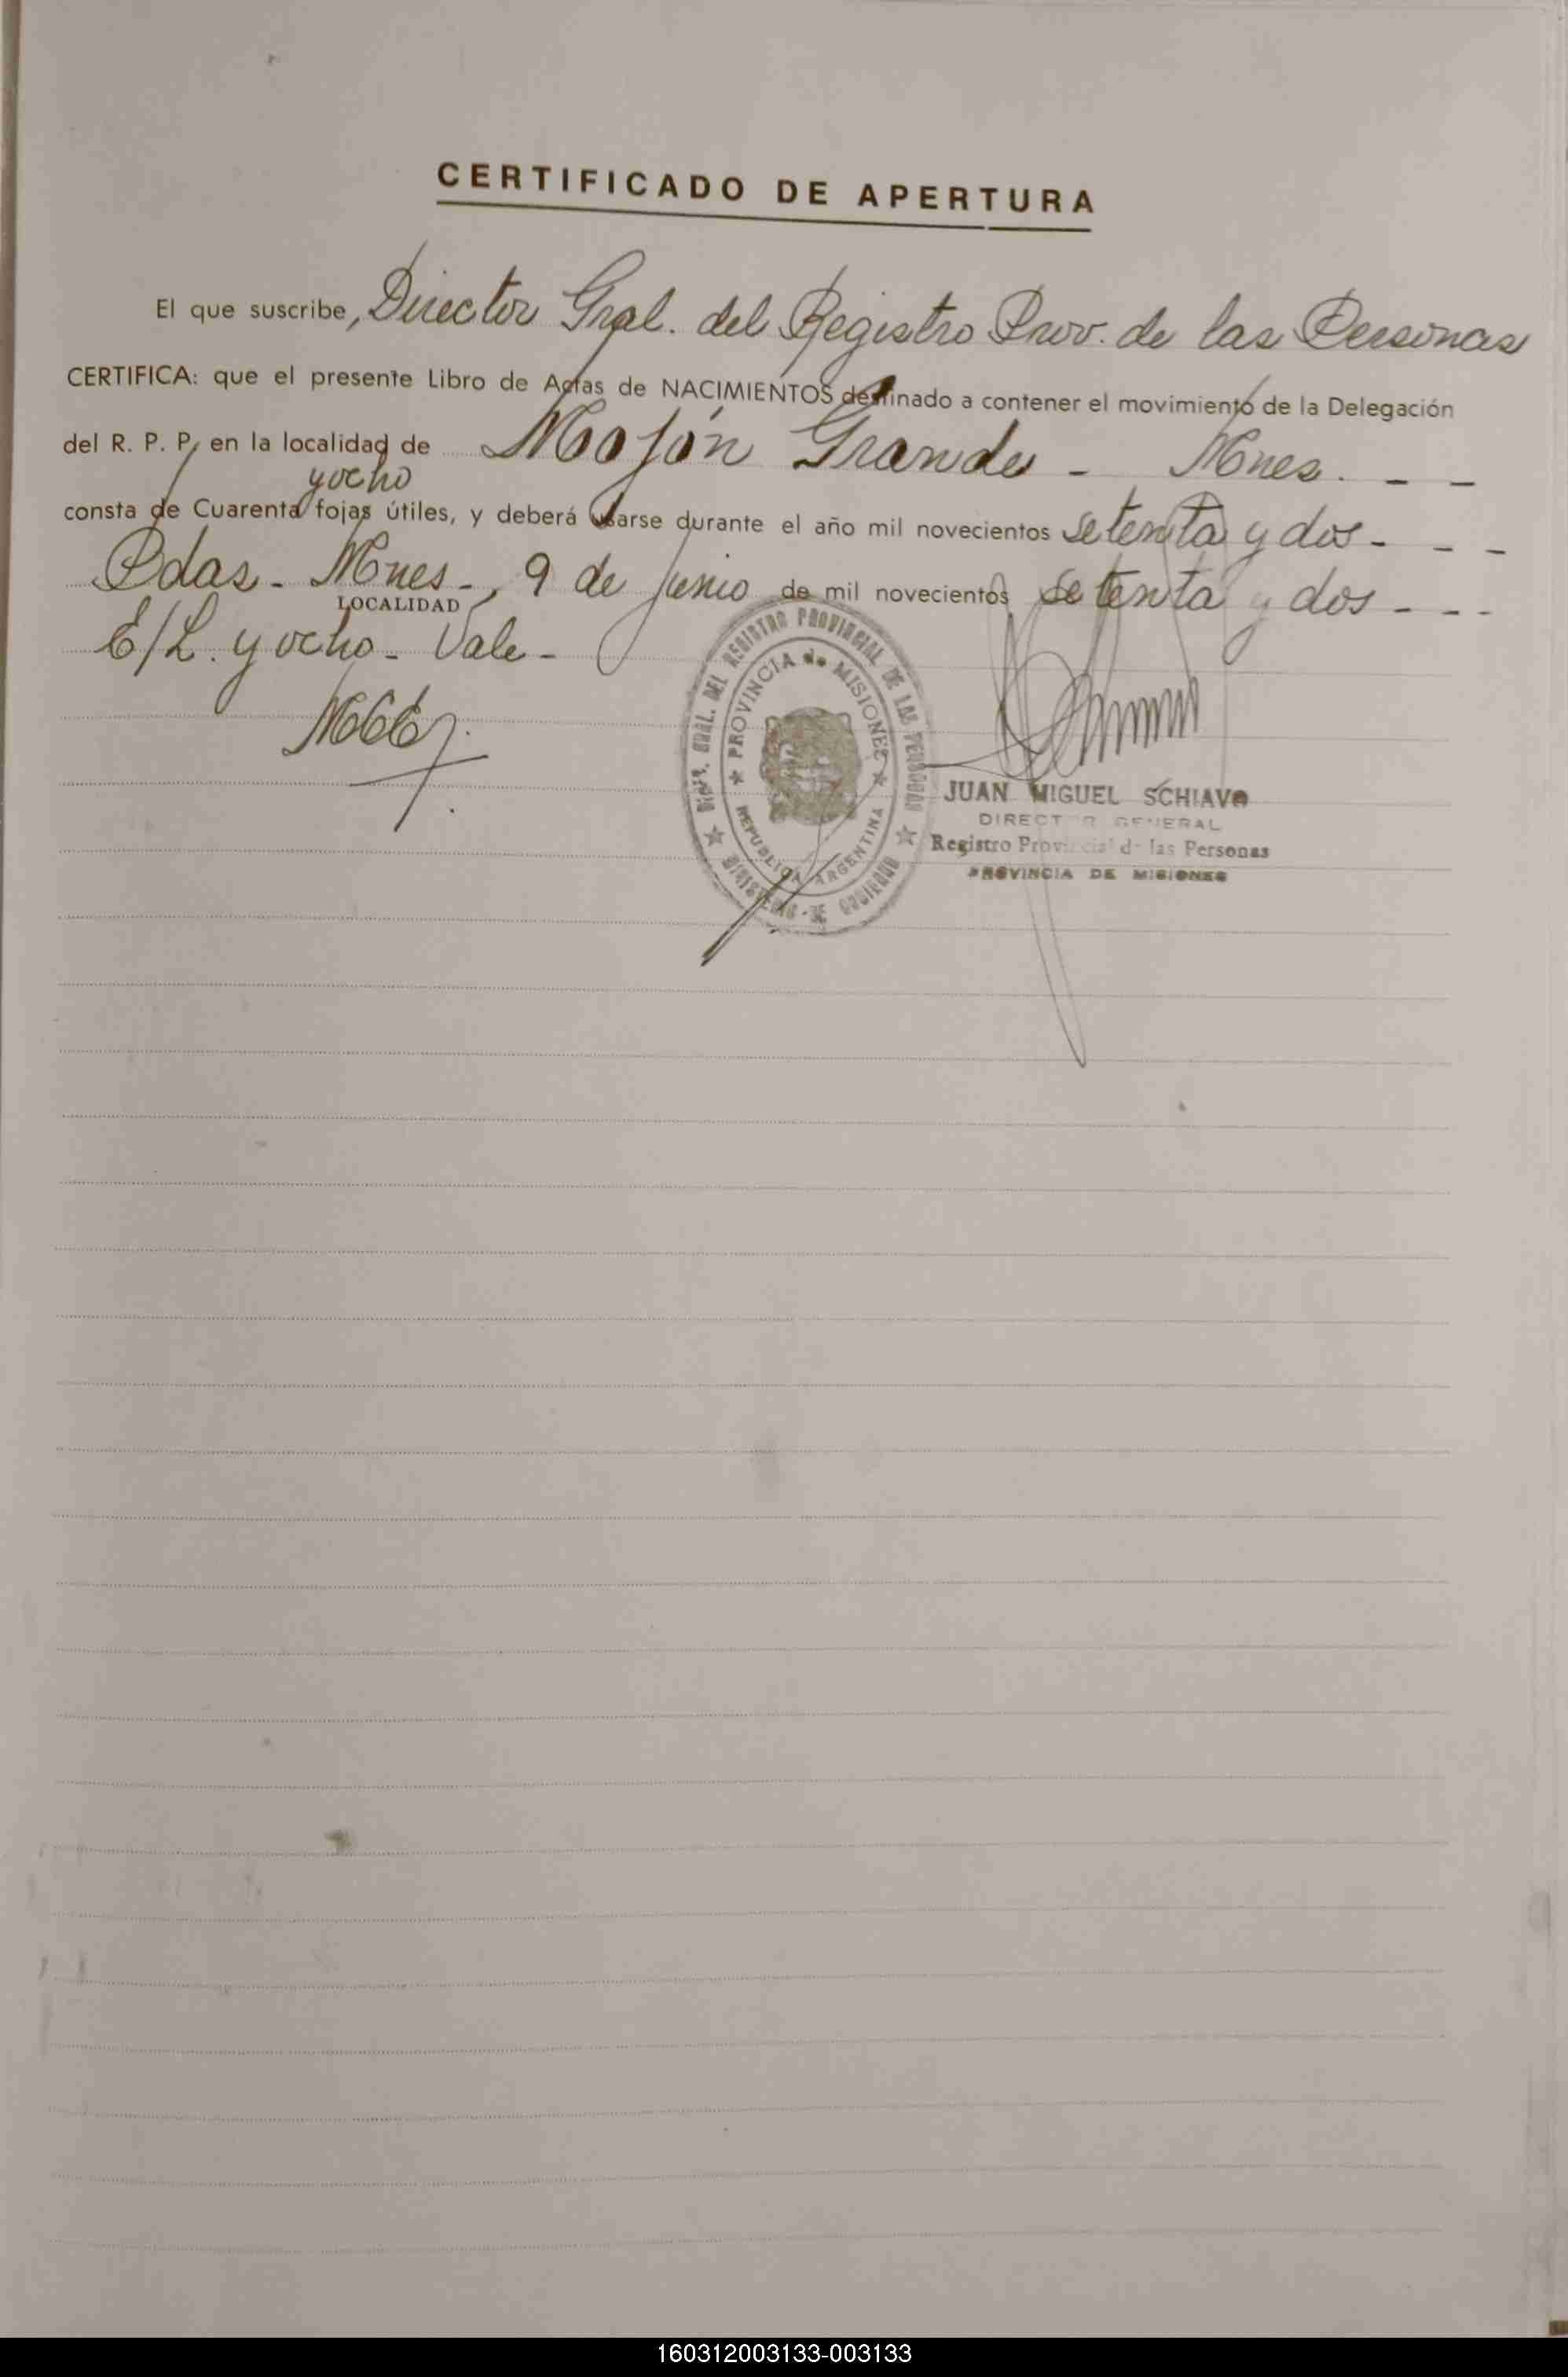 CERTIFICADO DE APERTURA
El que suscribe, Director Gral. del Registro Prov. de las Personas
CERTIFICA: que el presente Libro de Actas de NACIMIENTOS destinado a contener el movimiento de la Delegación
del R. P. P. en la localidad de Mojón Grande - Mnes. - -
yocho
consta de Cuarenta fojas útiles, y deberá usarse durante el año mil novecientos setenta y dos - - -
Pdas - Mnes -, 9 de junio de mil novecientos setenta y dos - - -
LOCALIDAD
E/L. y ocho - Vale -
DIREC. GRAL. DEL REGISTRO PROVINCIAL DE LAS PERSONAS
PROVINCIA de MISIONES
REPUBLICA ARGENTINA
MINISTERIO DE GOBIERNO
JUAN MIGUEL SCHIAVO
DIRECTOR GENERAL
Registro Provincial de las Personas
PROVINCIA DE MISIONES
160312003133-003133